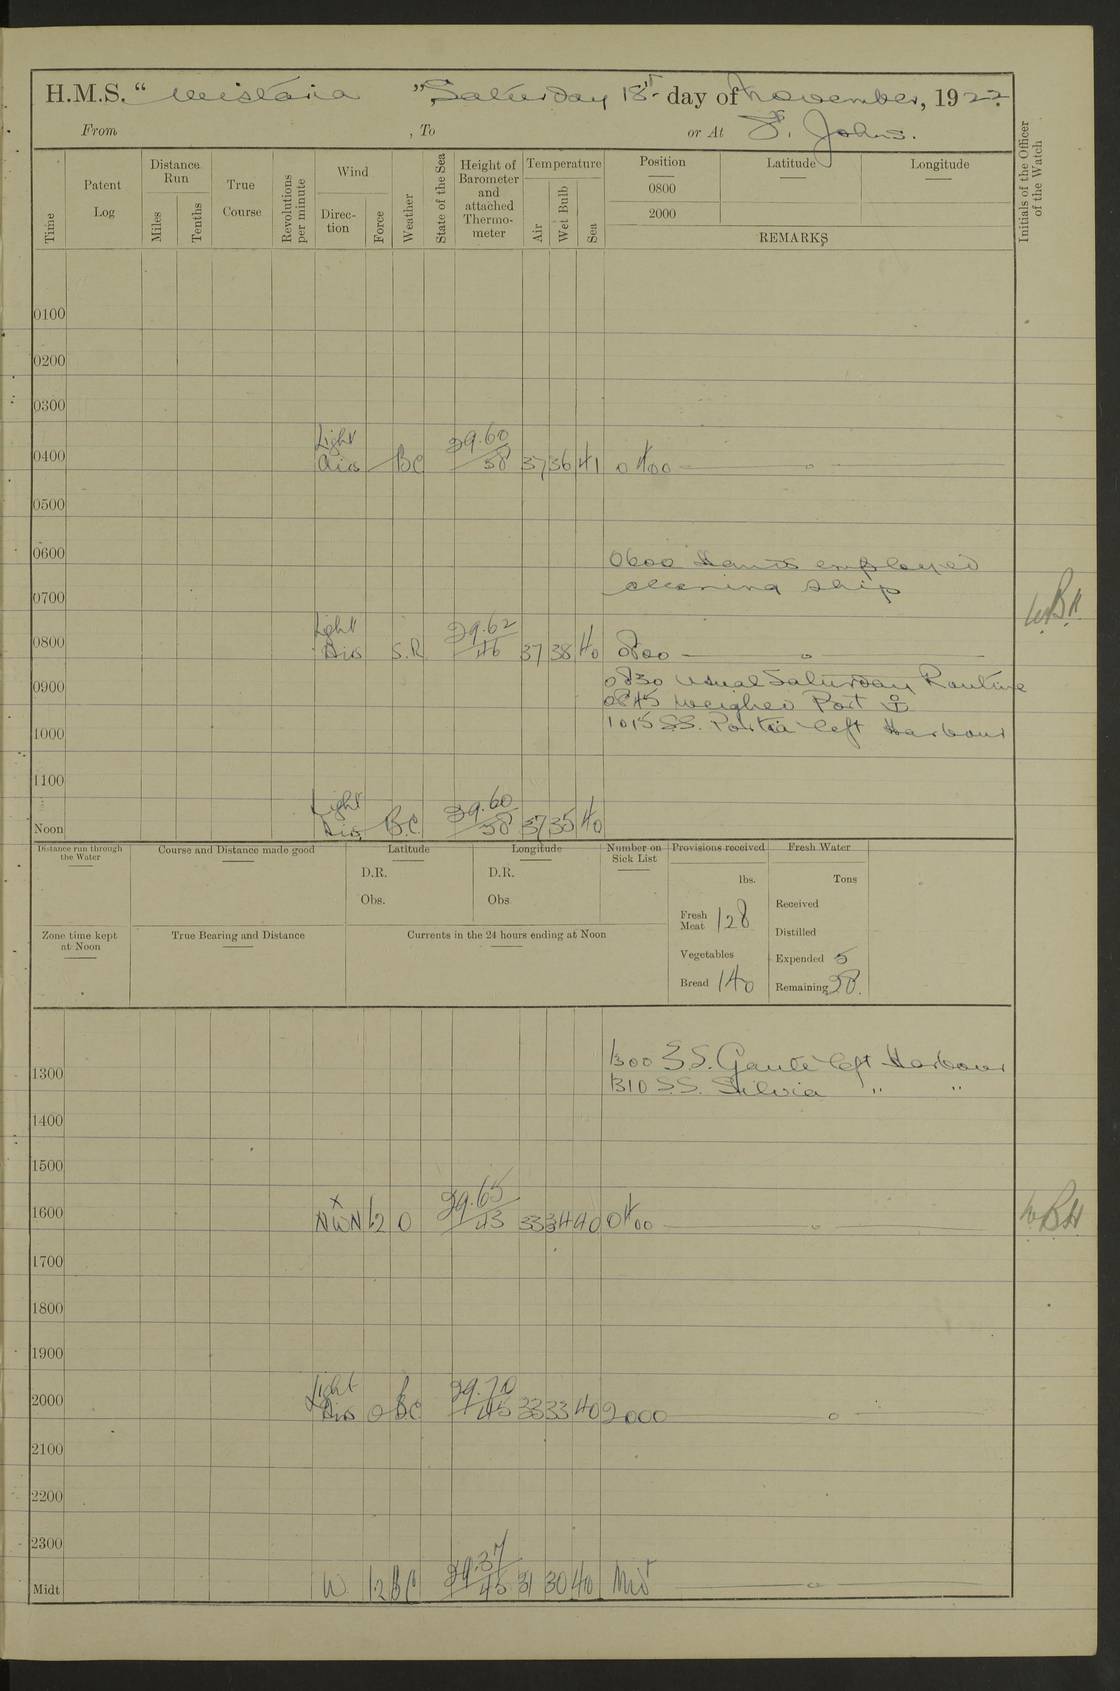 H.M.S. “ Wistaria ”, Saturday 18th day of November, 1922.
From , To or At St. Johns.
Time
Patent Log
Distance Run
Miles
Tenths
True Course
Revolutions per minute
Wind
Direction
Force
Weather
State of the Sea
Height of Barometer and attached Thermometer
Temperature
Air
Wet Bulb
Sea
Position
Latitude
Longitude
0800
2000
REMARKS
Initials of the Officer of the Watch
0100
0200
0300
0400 Light Airs BC 29.60/58 37 36 41 0400
0500
0600 0600 Hands employed
cleaning ship
0700
WBH
0800 Light Airs S.R 29.62/46 37 38 40 0800
0900 0830 Usual Saturday Routine
0845 Weighed Port ⚓
1000 1015 S.S. Portia left Harbour
1100
Noon Light Airs B.C. 29.60/58 37 35 40
Distance run through the Water
Course and Distance made good
Latitude
D.R.
Obs.
Longitude
D.R.
Obs
Number on Sick List
Provisions received
lbs.
Fresh Meat 128
Vegetables
Bread 140
Fresh Water
Tons
Received
Distilled
Expended 5
Remaining 58.
Zone time kept at Noon
True Bearing and Distance
Currents in the 24 hours ending at Noon
1300 1300 S.S. left Harbour
1310 S.S. Silvia " "
1400
1500
1600 NWxN 1.2 O 29.65/43 33 34 40 0400
WBH
1700
1800
1900
2000 Light Airs O BC 29.70/45 33 33 40 2000
2100
2200
2300
Midt W 1.2 BC 29.37/45 31 30 40 Midt